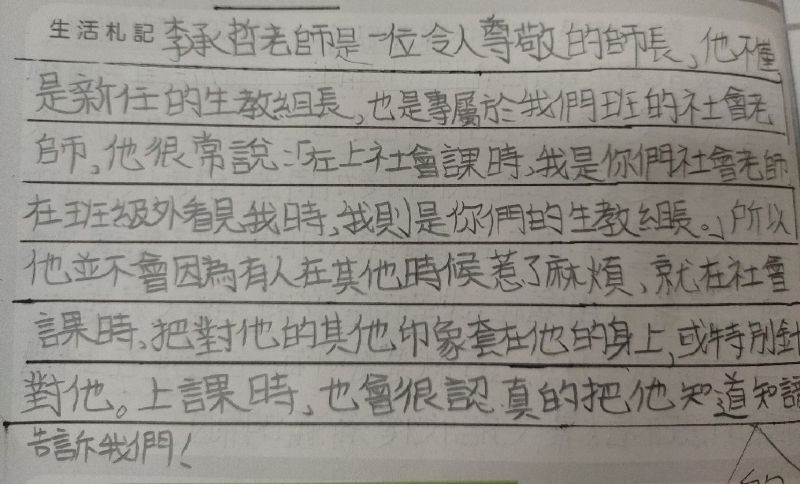 生活札記 李承哲老師是一位令人尊敬的師長，他不僅
是新任的生教組長，也是專屬於我們班的社會老
師，他很常說：「在上社會課時，我是你們社會老師
在班級外看見我時，我則是你們的生教組長。」所以
他並不會因為有人在其他時候惹了麻煩、就在社會
課時、把對他的其他印象套在他的身上，或特別針
對他。上課時、也會很認真的把他知道知識
告訴我們！
的